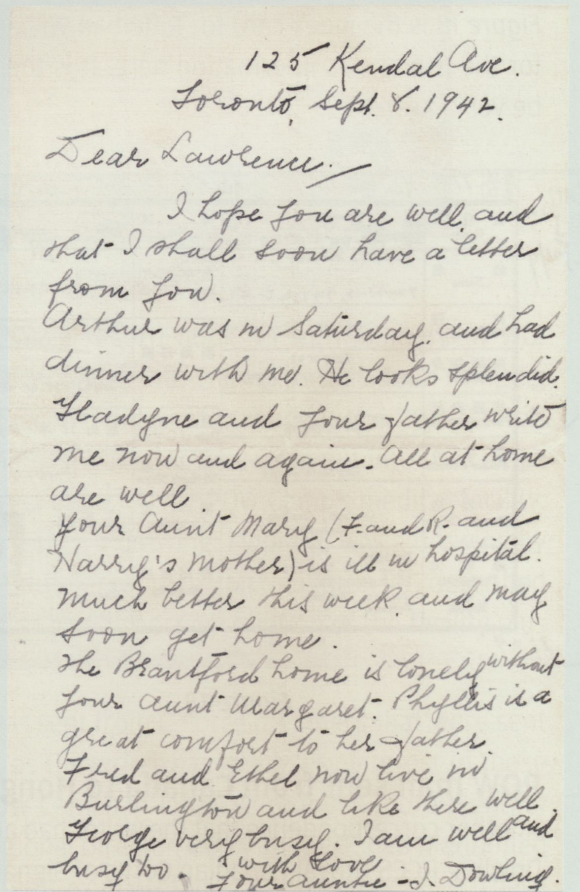 125 Kendal Ave.
Toronto, Sept. 8. 1942.
Dear Lawrence. /
I hope you are well, and
that I shall soon have a letter
from you.
Arthur was in Saturday, and had
dinner with me. He looks splendid.
Gladyne and your father write
me now and again. All at home
are well
Your Aunt Mary (F. and R. and
Harry's mother) is ill in hospital.
Much better this week and may
soon get home.
The Brantford home is lonely without
your Aunt Margaret. Phyllis is a
great comfort to her father.
Fred and Ethel now live in
Burlington and like there well.
George very busy. I am well and
busy too. with Love
Your auntie - J. Dowling.